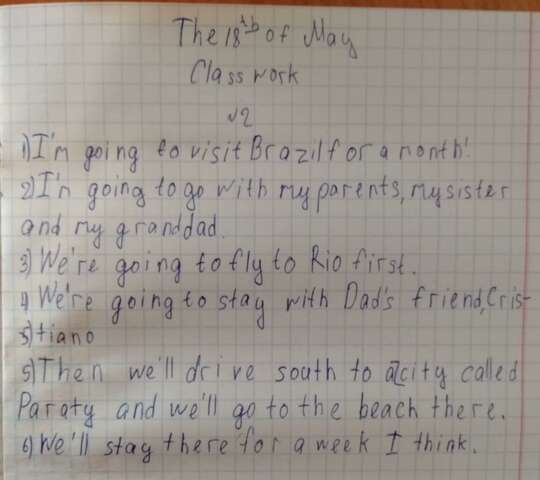 The 18th of May
Class work
√2
1) I'm going to visit Brazil for a month!
2) I'm going to go with my parents, my sister
and my granddad.
3) We're going to fly to Rio first.
4) We're going to stay with Dad's friend, Cris-
5) tiano
5) Then we'll drive south to a city called
Paraty and we'll go to the beach there.
6) We'll stay there for a week I think.